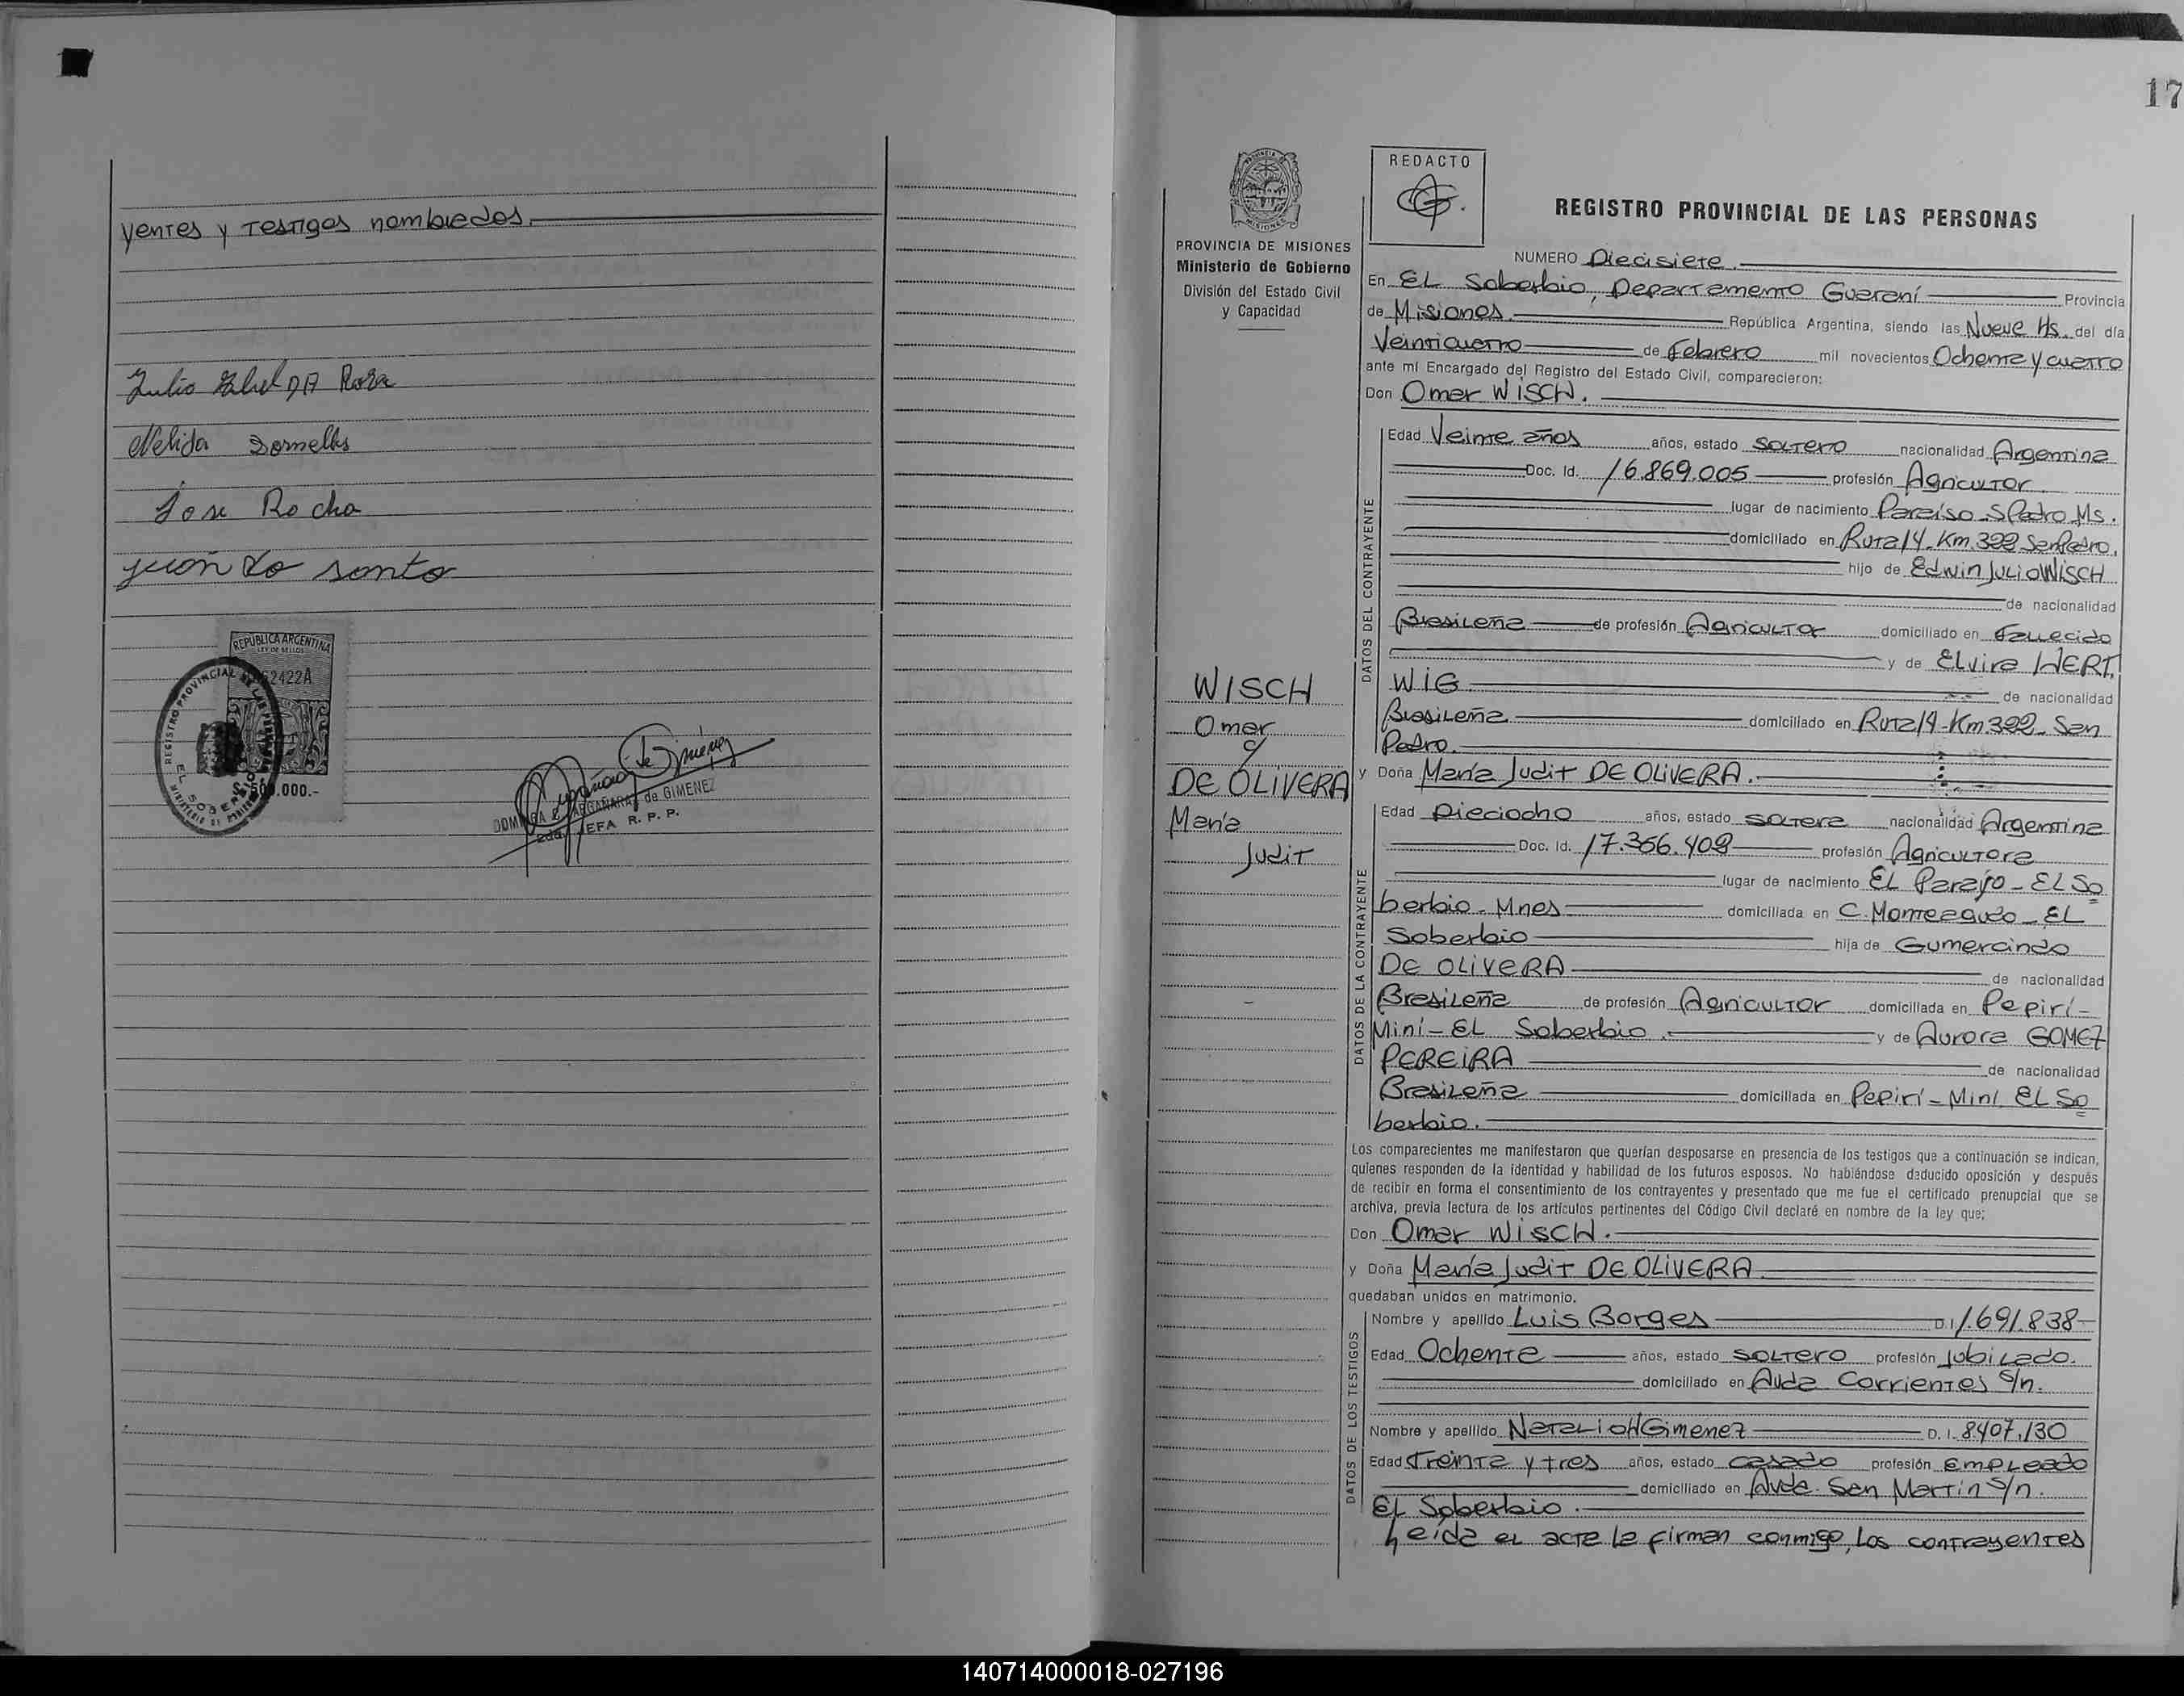 yentes y Testigos nombrados.
DA Rosa
Nelida Dornelles
Jose Rocha
REPUBLICA ARGENTINA
LEY DE SELLOS
2422A
REGISTRO PROVINCIAL DE LAS PERSONAS
EL SOBERBIO
MINISTERIO DE
000.-
de GIMENEZ
JEFA R. P. P.
17
PROVINCIA DE MISIONES
Ministerio de Gobierno
División del Estado Civil
y Capacidad
REDACTO
REGISTRO PROVINCIAL DE LAS PERSONAS
NUMERO Diecisiete.
En EL Soberbio, Departamento Guaraní Provincia
de Misiones. República Argentina, siendo las Nueve Hs. del día
Veinticuatro de Febrero mil novecientos Ochenta y cuatro
ante mí Encargado del Registro del Estado Civil, comparecieron:
Don Omar WISCH.
DATOS DEL CONTRAYENTE
Edad Veinte años años, estado SOLTERO nacionalidad Argentina
Doc. Id. 16.869.005 profesión Agricultor
lugar de nacimiento Paraíso S Pedro Ms.
domiciliado en Ruta 14-Km. 322 San Pedro.
hijo de Edwin Julio WISCH
de nacionalidad
Brasileña de profesión Agricultor domiciliado en Fallecido
y de Elvira HERT
WIG de nacionalidad
Brasileña domiciliado en Ruta 14-Km 322- San
Pedro.
WISCH
Omar
c/
DE OLIVERA
María
Judit
y Doña María Judit DE OLIVERA.
DATOS DE LA CONTRAYENTE
Edad Dieciocho años, estado SOLTERA nacionalidad Argentina
Doc. Id. 17.366.402 profesión Agricultora
lugar de nacimiento EL Paraíso - EL So
berbio - Mnes domiciliada en C. Monteagudo - EL
Soberbio hija de Gumercindo
DE OLIVERA de nacionalidad
Brasileña de profesión Agricultor domiciliada en Pepirí-
Miní- EL Soberbio. y de Aurora GOMEZ
PEREIRA de nacionalidad
Brasileña domiciliada en Pepirí - Miní. EL So
berbio.
Los comparecientes me manifestaron que querían desposarse en presencia de los testigos que a continuación se indican,
quienes responden de la identidad y habilidad de los futuros esposos. No habiéndose deducido oposición y después
de recibir en forma el consentimiento de los contrayentes y presentado que me fue el certificado prenupcial que se
archiva, previa lectura de los artículos pertinentes del Código Civil declaré en nombre de la ley que;
Don Omar WISCH.
y Doña María Judit DE OLIVERA
quedaban unidos en matrimonio.
DATOS DE LOS TESTIGOS
Nombre y apellido Luis Borges D.I 1.691.838
Edad Ochenta años, estado SOLTERO profesión Jubilado.
domiciliado en Avda Corrientes S/n.
Nombre y apellido Natalio H Gimenez D. I. 8407.130
Edad Treinta y tres años, estado casado profesión Empleado
domiciliado en Avda. San Martín S/n.
EL Soberbio.
Leída el acta la firman conmigo, los contrayentes
140714000018-027196